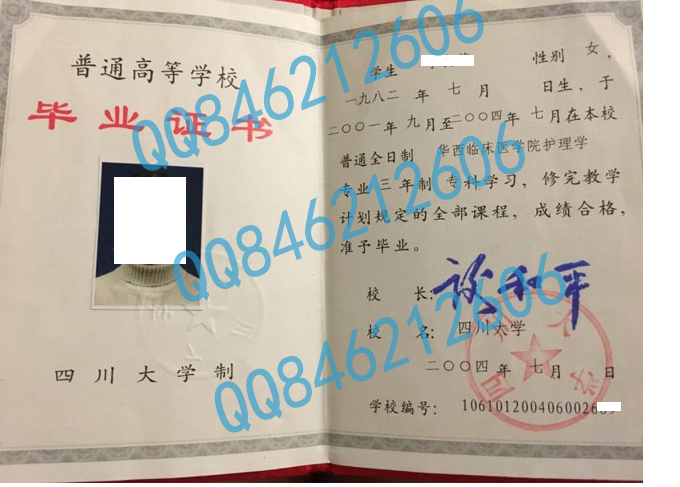 普通高等学校
毕业证书
四川大学制
学生 性别 女，
一九八二 年 七 月 日生，于
二〇〇一年 九月至二〇〇四年 七月在本校
普通全日制 华西临床医学院护理学
专业 三 年制 专科学习，修完教学
计划规定的全部课程，成绩合格，
准予毕业。
校 长：
校 名：四川大学
二〇〇四 年 七 月 日
学校编号：
QQ846212606
QQ846212606
QQ846212606